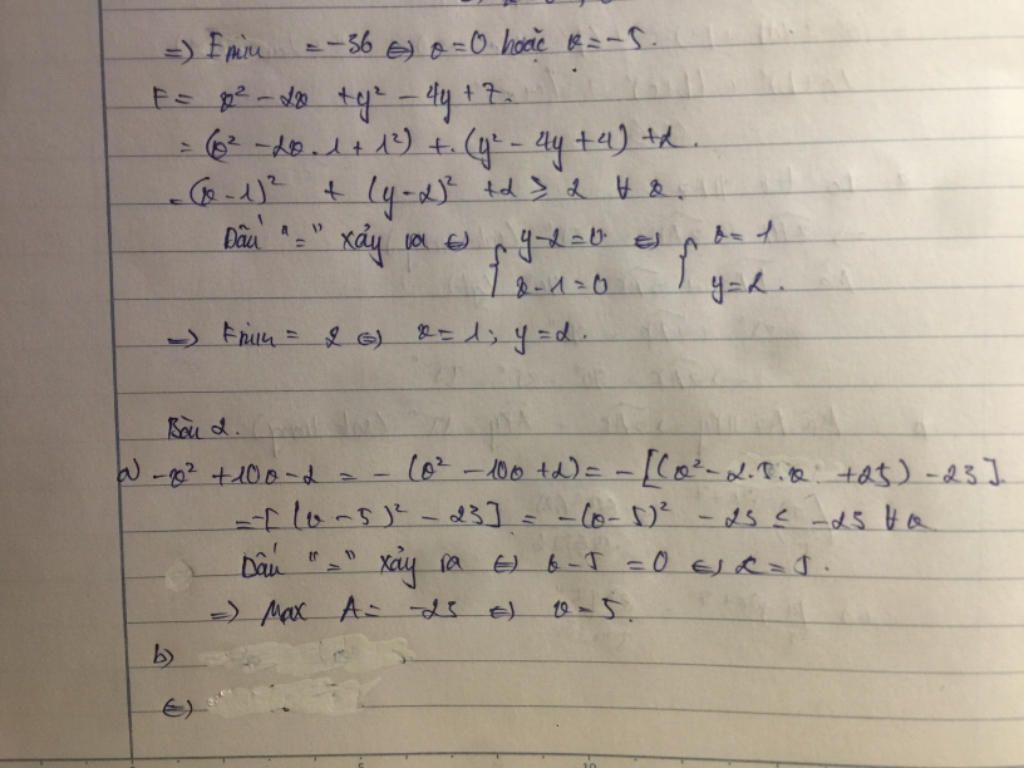 => Emin = -36 <=> x = 0 hoặc x = -5.
F = x² - 2x + y² - 4y + 7.
= (x² - 2x.1 + 1²) + (y² - 4y + 4) + 2.
= (x - 1)² + (y - 2)² + 2 ≥ 2 ∀ x.
Dấu "=" xảy ra <=> { y - 2 = 0 <=> { x = 1
x - 1 = 0 y = 2.
=> Fmin = 2 <=> x = 1; y = 2.
Bài 2.
a) -x² + 10x - 2 = - (x² - 10x + 2) = - [(x² - 2.5.x + 25) - 23].
= -[(x - 5)² - 23] = -(x - 5)² - 23 ≤ -23 ∀ x
Dấu "=" xảy ra <=> x - 5 = 0 <=> x = 5.
=> Max A = -23 <=> x = 5.
b)
c)